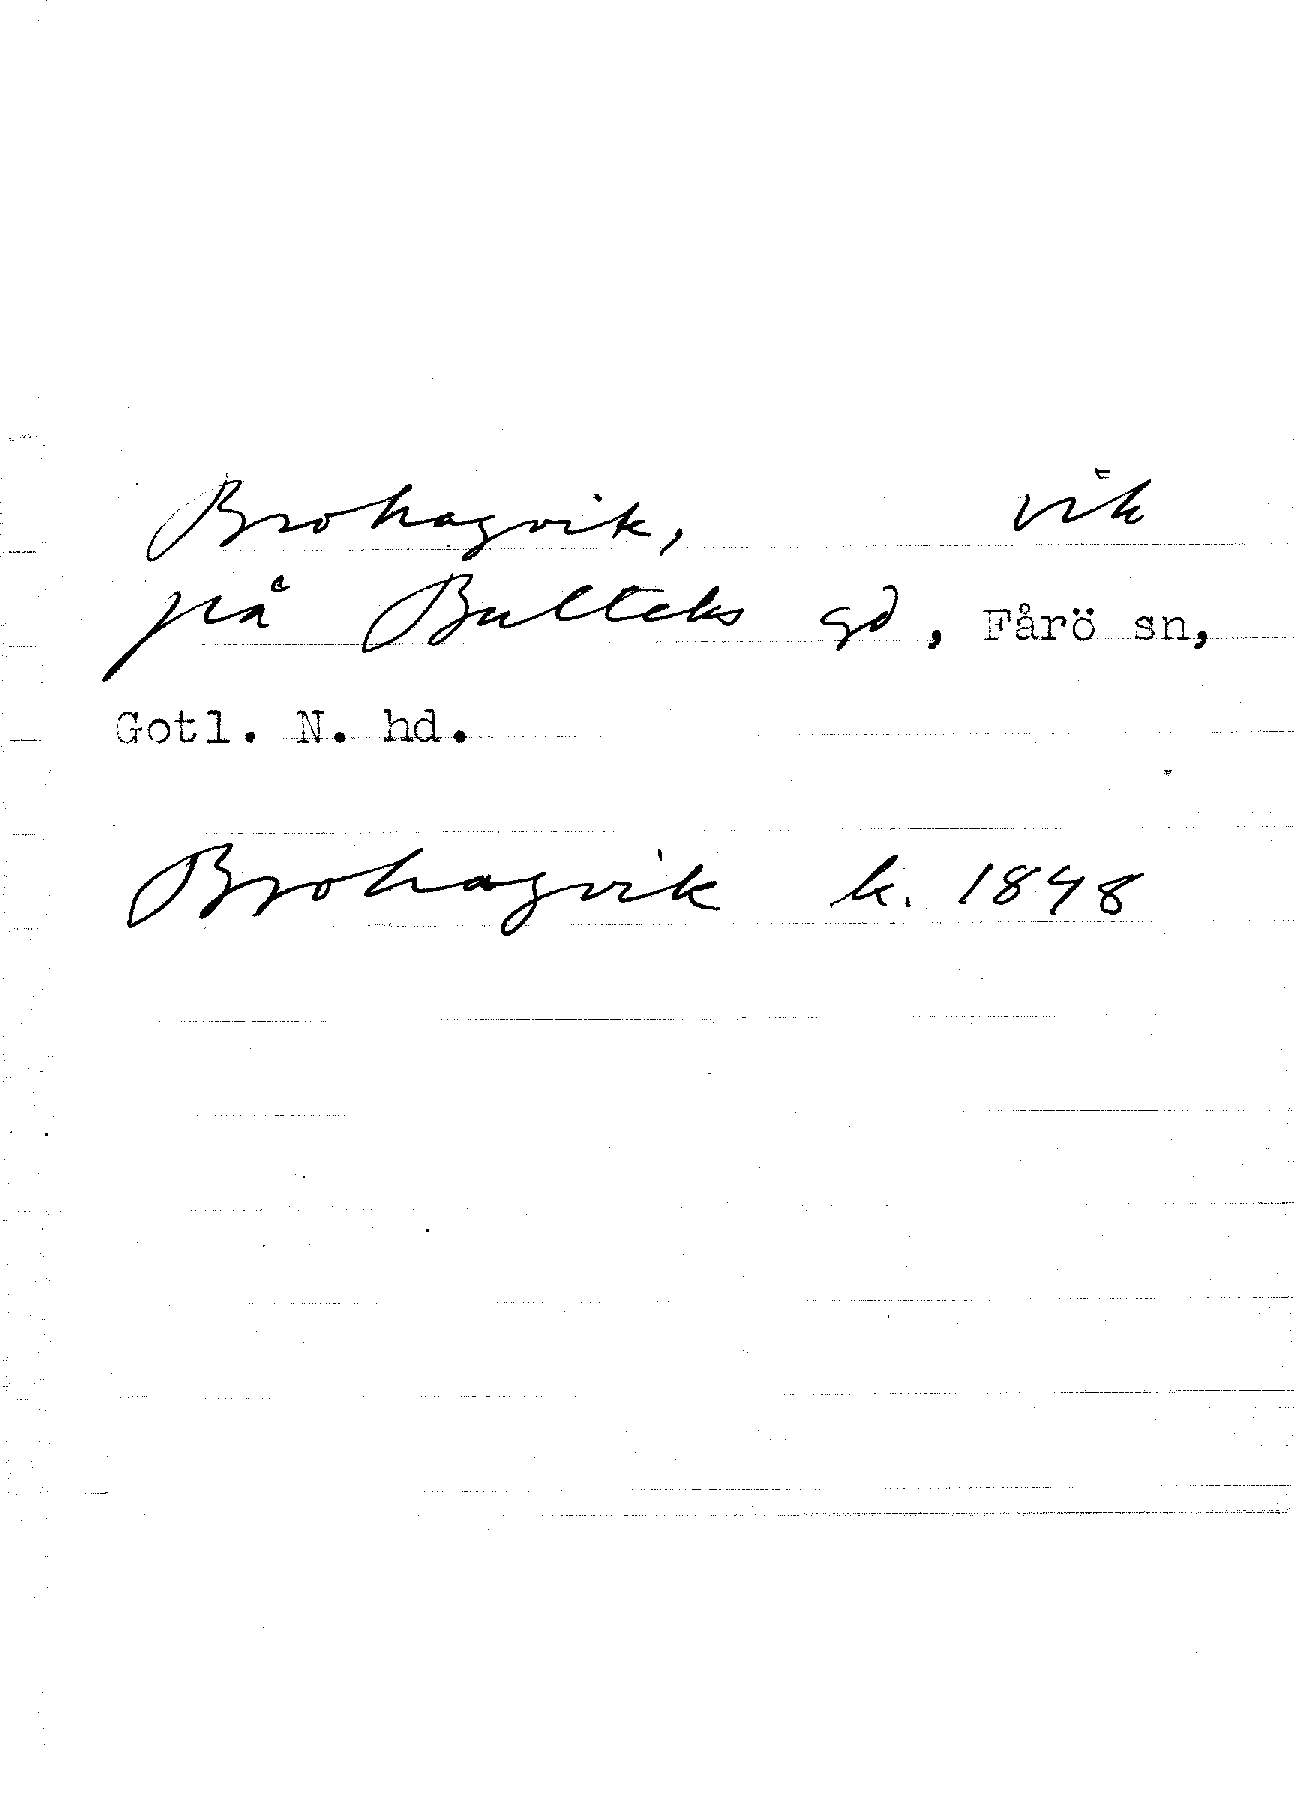 Brohagvik, vik
på Bulteks gd, Fårö sn,
Gotl. N. hd.
Brohagvik k. 1848